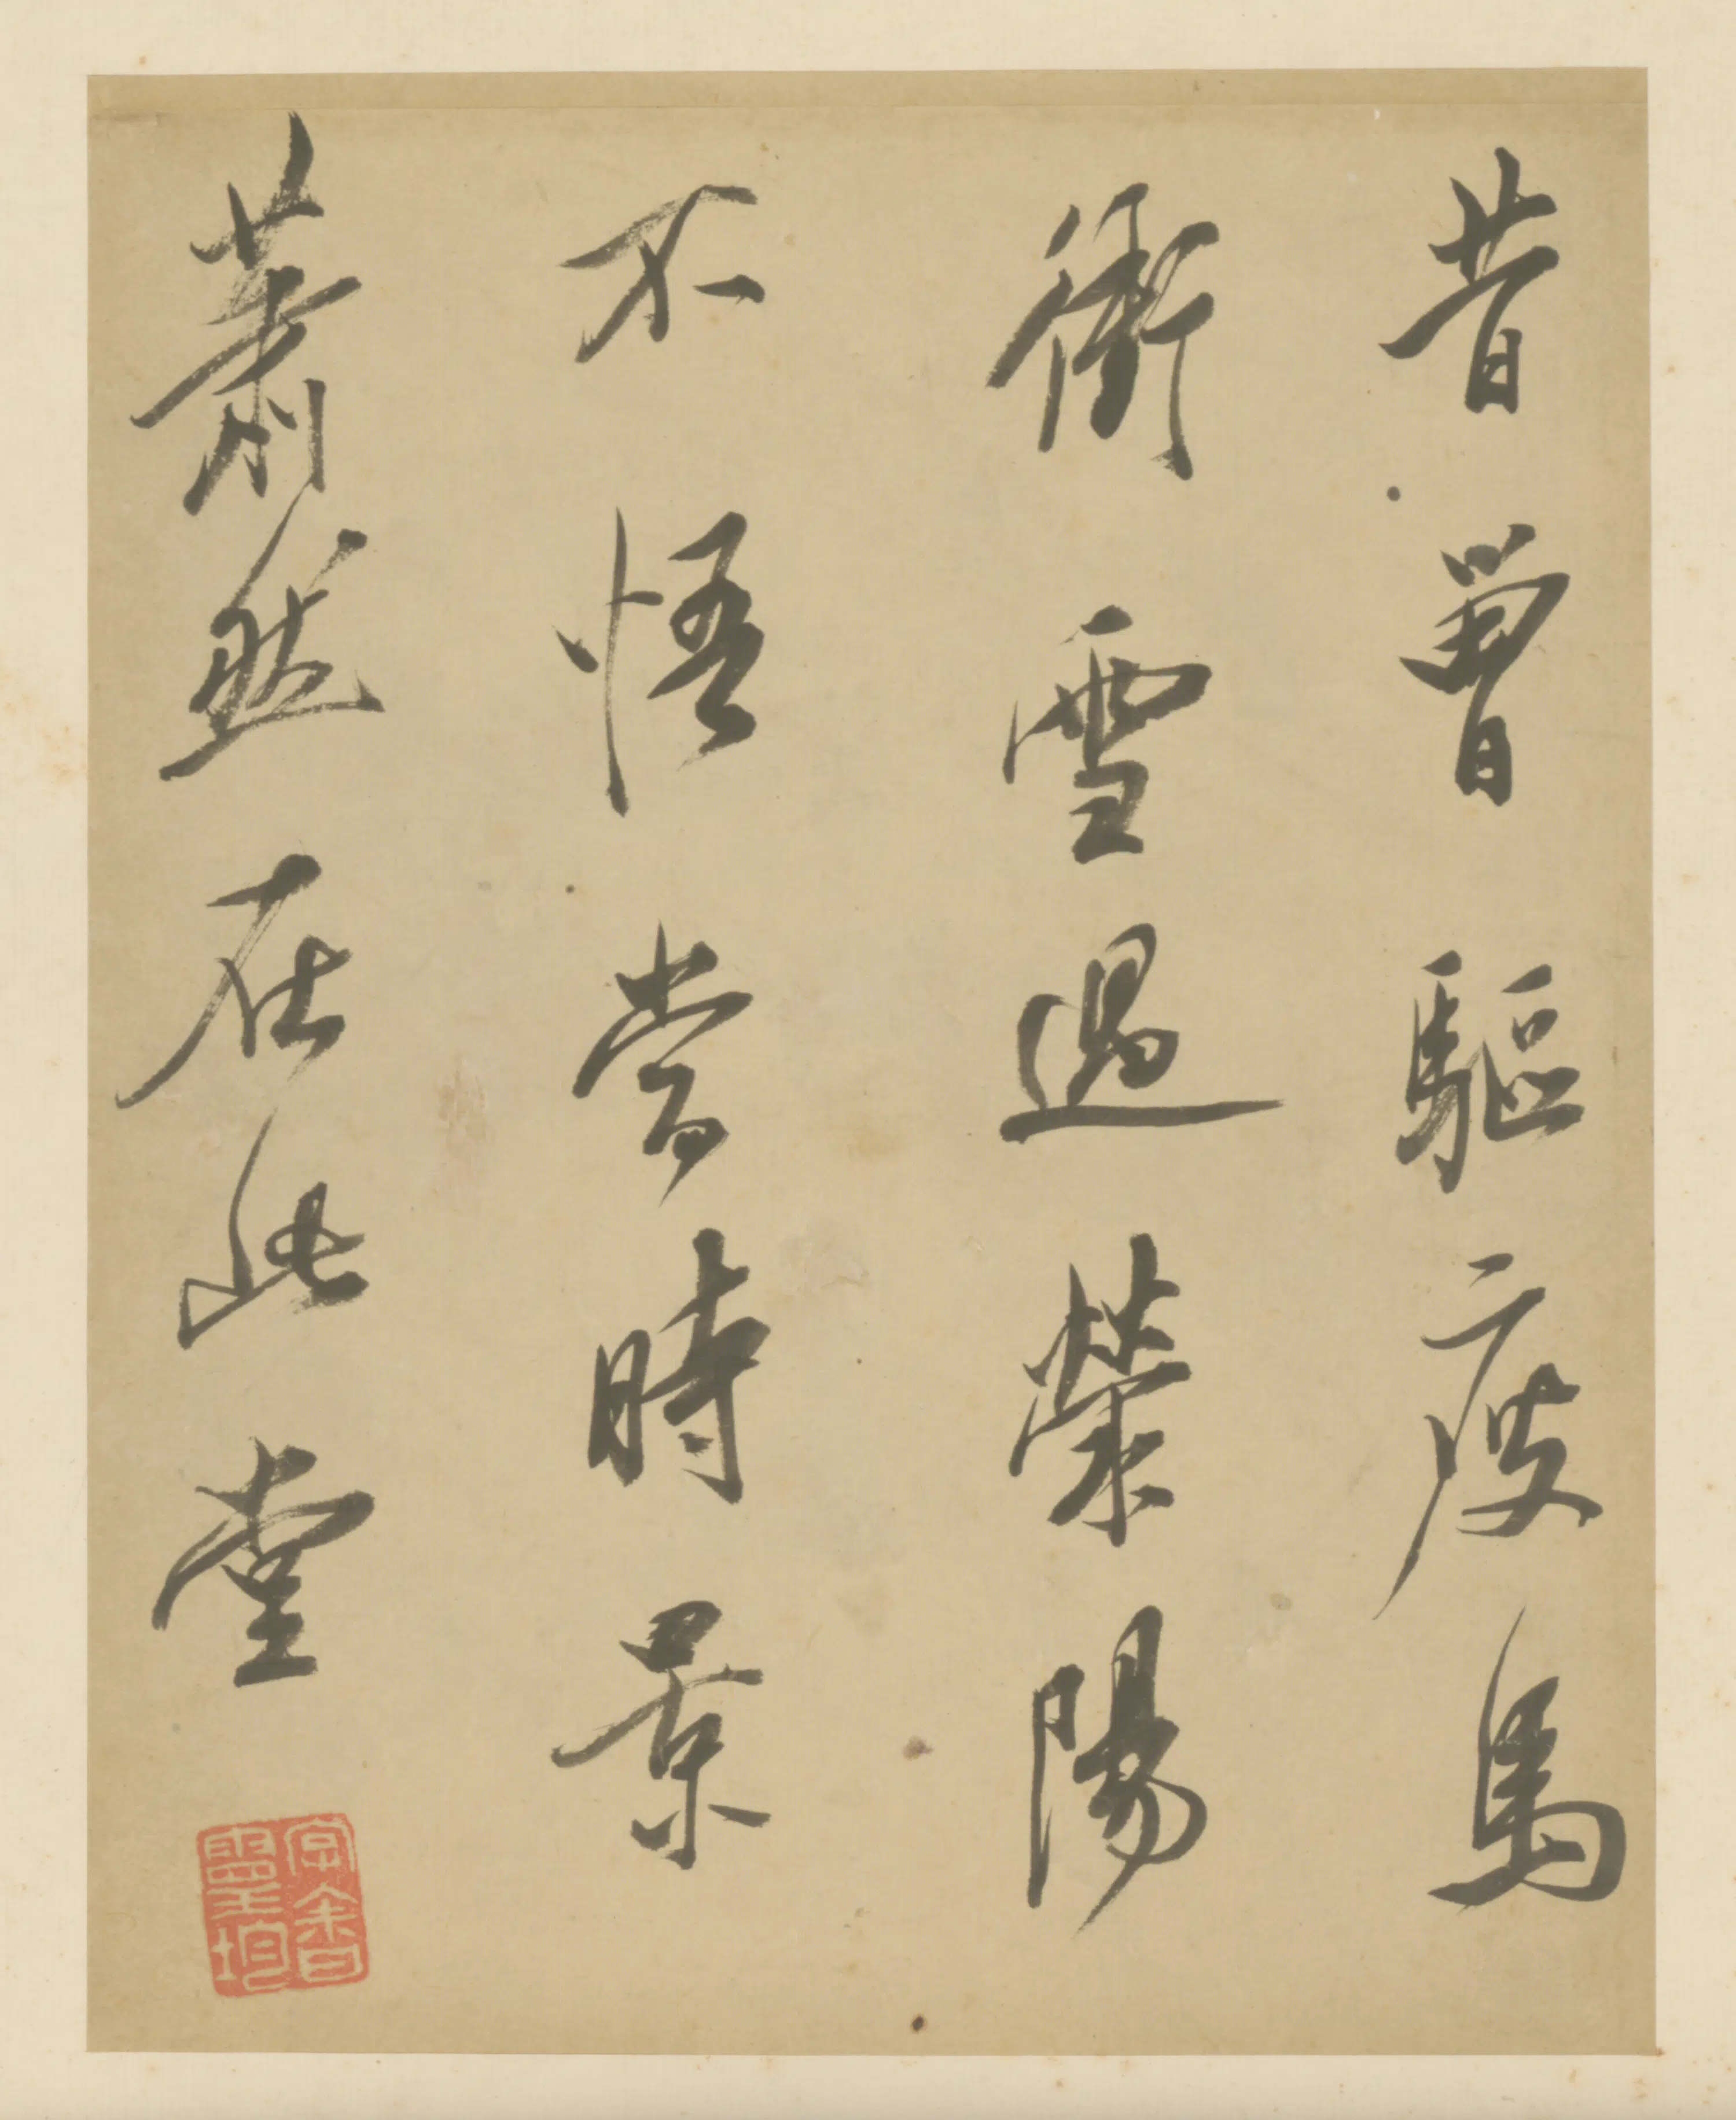 昔曾驅瘦馬
衝雪過滎陽
不悟當時景
蕭然在此堂